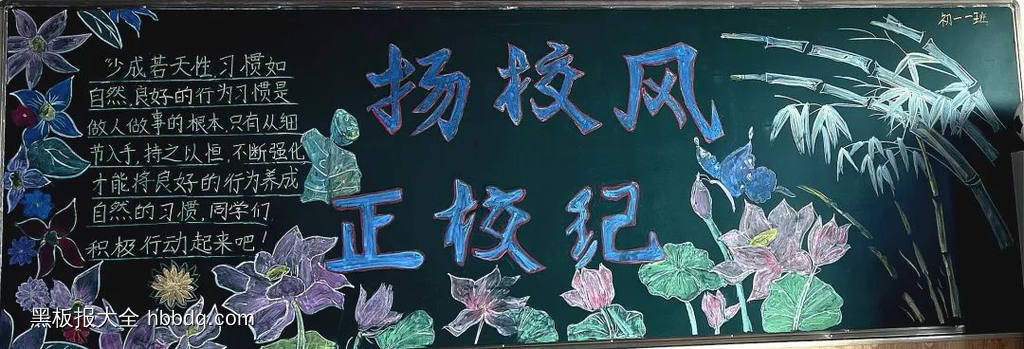 初一一班
扬校风
正校纪
"少成若天性习惯如
自然,良好的行为习惯是
做人做事的根本,只有从细
节入手,持之以恒,不断强化
才能将良好的行为养成
自然的习惯,同学们
积极行动起来吧!
黑板报大全 hbbdq.com